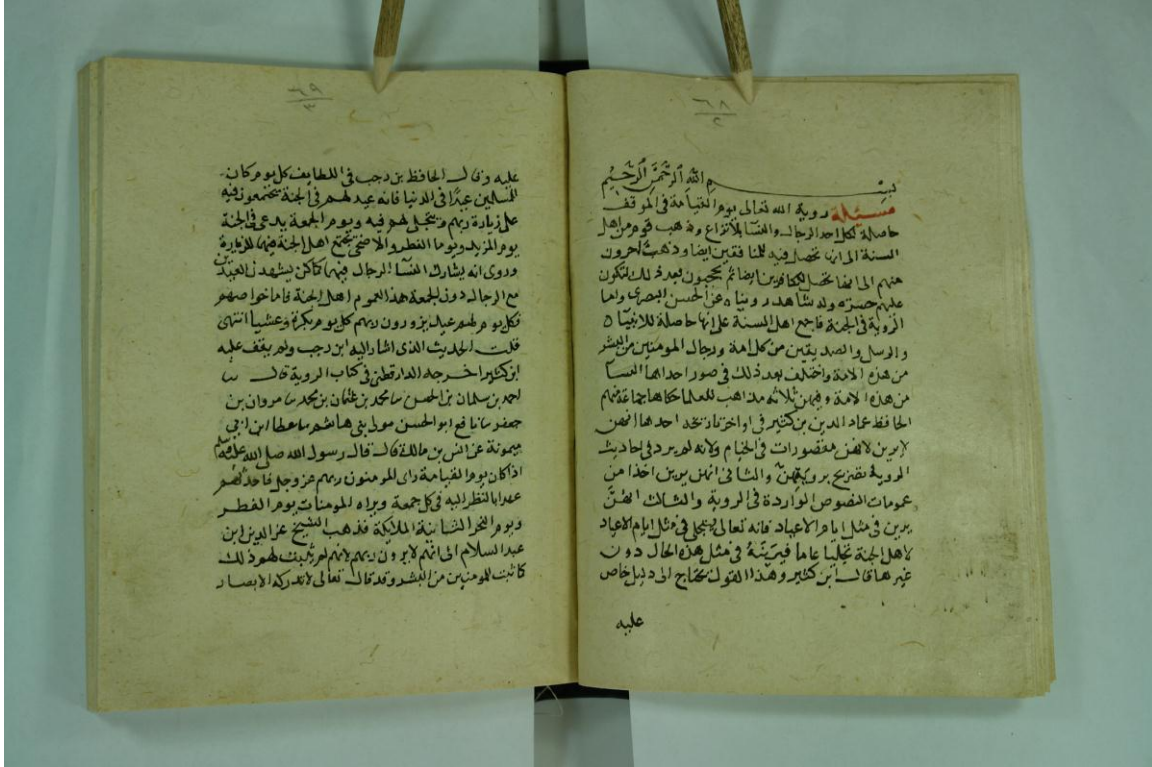 ٦٨
٢
بسم الله الرحمن الرحيم
مسئلة روية الله تعالى يوم القيامة فى الموقف
حاصلة لكل احد الرجال والنسا بلا نزاع وذهب قوم من اهل
السنة الى انها تحصل فيه للمنافقين ايضا وذهب اخرون
منهم الى انها تحصل للكافرين ايضا ثم يحجبون بعد ذلك لتكون
عليهم حسرة وله شاهد رويناه عن الحسن البصرى واما
الروية فى الجنة فاجمع اهل السنة على انها حاصلة للانبيا
والرسل والصديقين من كل امة ورجال المومنين من البشر
من هذه الامة واختلف بعد ذلك فى صور احداها النسا
من هذه الامة وفيهن ثلاثة مذاهب للعلما حكاها جماعة منهم
الحافظ عماد الدين بن كثير فى اواخر تاريخه احدها انهن
لا يرين لانهن مقصورات فى الخيام ولانه لم يرد فى احاديث
الروية تصريح برويتهن والثانى انهن يرين اخذا من
عمومات النصوص الواردة فى الروية والثالث انهن
يرين فى مثل ايام الاعياد فانه تعالى يتجلى فى مثل ايام الاعياد
لاهل الجنة تجليا عاما فيرينه فى مثل هذه الحال دون
غيرها قال ابن كثير وهذا القول يحتاج الى دليل خاص
عليه
٦٩
٣
عليه وقال الحافظ بن رجب فى اللطايف كل يوم كان
للمسلمين عيدا فى الدنيا فانه عيد لهم فى الجنة يجتمعون فيه
على زيارة ربهم ويتجلى لهم فيه ويوم الجمعة يدعى فى الجنة
يوم المزيد ويوما الفطر والاضحى يجتمع اهل الجنة فيهما للزيارة
وروى انه يشارك النسا الرجال فيهما كما كن يشهدن العيدين
مع الرجال دون الجمعة هذا لعموم اهل الجنة فاما خواصهم
فكل يوم لهم عيد يزورون ربهم كل يوم بكرة وعشيا انتهى
قلت الحديث الذى اشار اليه ابن رجب ولم يقف عليه
ابن كثير اخرجه الدارقطنى فى كتاب الروية قال ثنا
احمد بن سلمان بن الحسن ثنا محمد بن عثمان بن محمد ثنا مروان بن
جعفر ثنا نافع ابو الحسن مولى بنى هاشم ثنا عطا ابن ابى
ميمونة عن انس بن مالك قال قال رسول الله صلى الله عليه وسلم
اذا كان يوم القيامة راى المومنون ربهم عز وجل فاحدثهم
عهدا بالنظر اليه فى كل جمعة ويراه المومنات يوم الفطر
ويوم النحر الثانية الملايكة فذهب الشيخ عز الدين ابن
عبد السلام الى انهم لا يرون ربهم لانهم لم يثبت لهم ذلك
كما ثبت للمومنين من البشر وقد قال تعالى لا تدركه الابصار